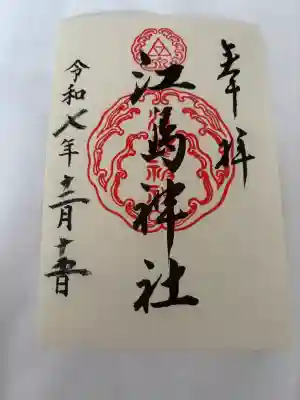 奉拝
江島神社
令和七年十二月十五日